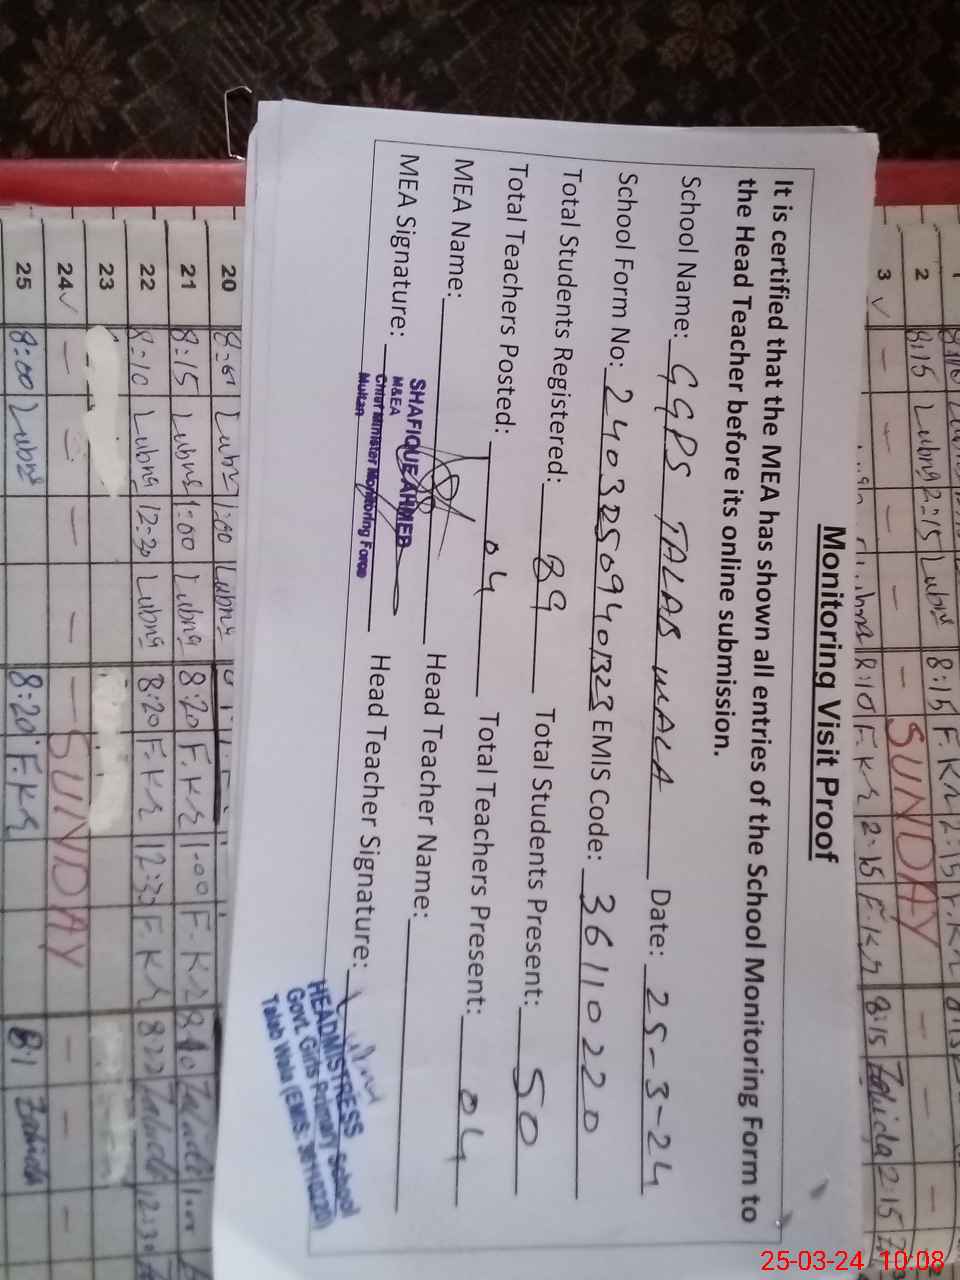 Monitoring Visit Proof
It is certified that the MEA has shown all entries of the School Monitoring Form to
the Head Teacher before its online submission.
School Name: GGPS TALAB WALA Date: 25-3-24
School Form No: EMIS Code: 36110220
Total Students Registered: 89 Total Students Present: 50
Total Teachers Posted: 04 Total Teachers Present: 04
MEA Name: Head Teacher Name:
MEA Signature: Head Teacher Signature:
SHAFIQUE AHMED
M&EA
Chief Minister Monitoring Force
Multan
HEADMISTRESS
Govt. Girls Primary School
Talab Wala (EMIS: 36110220)
2 8:15 Lubna 2:15 Lubna 8:15 F.Kr 2:15 F.Kr
3 SUNDAY
8:10 F.Kr 2:15 F.Kr 8:15 Zahida 2:15
20 Lubna 1:00 Lubna
21 8:15 Lubna 1:00 Lubna 8:20 F.Kr 1:00 F.Kr
22 8:10 Lubna 12:30 Lubna 8:20 F.Kr 12:30 F.Kr 8:22 12:30
23
24 SUNDAY
25 8:00 Lubna 8:20 F.Kr 8:1 Zahida
25-03-24 10:08